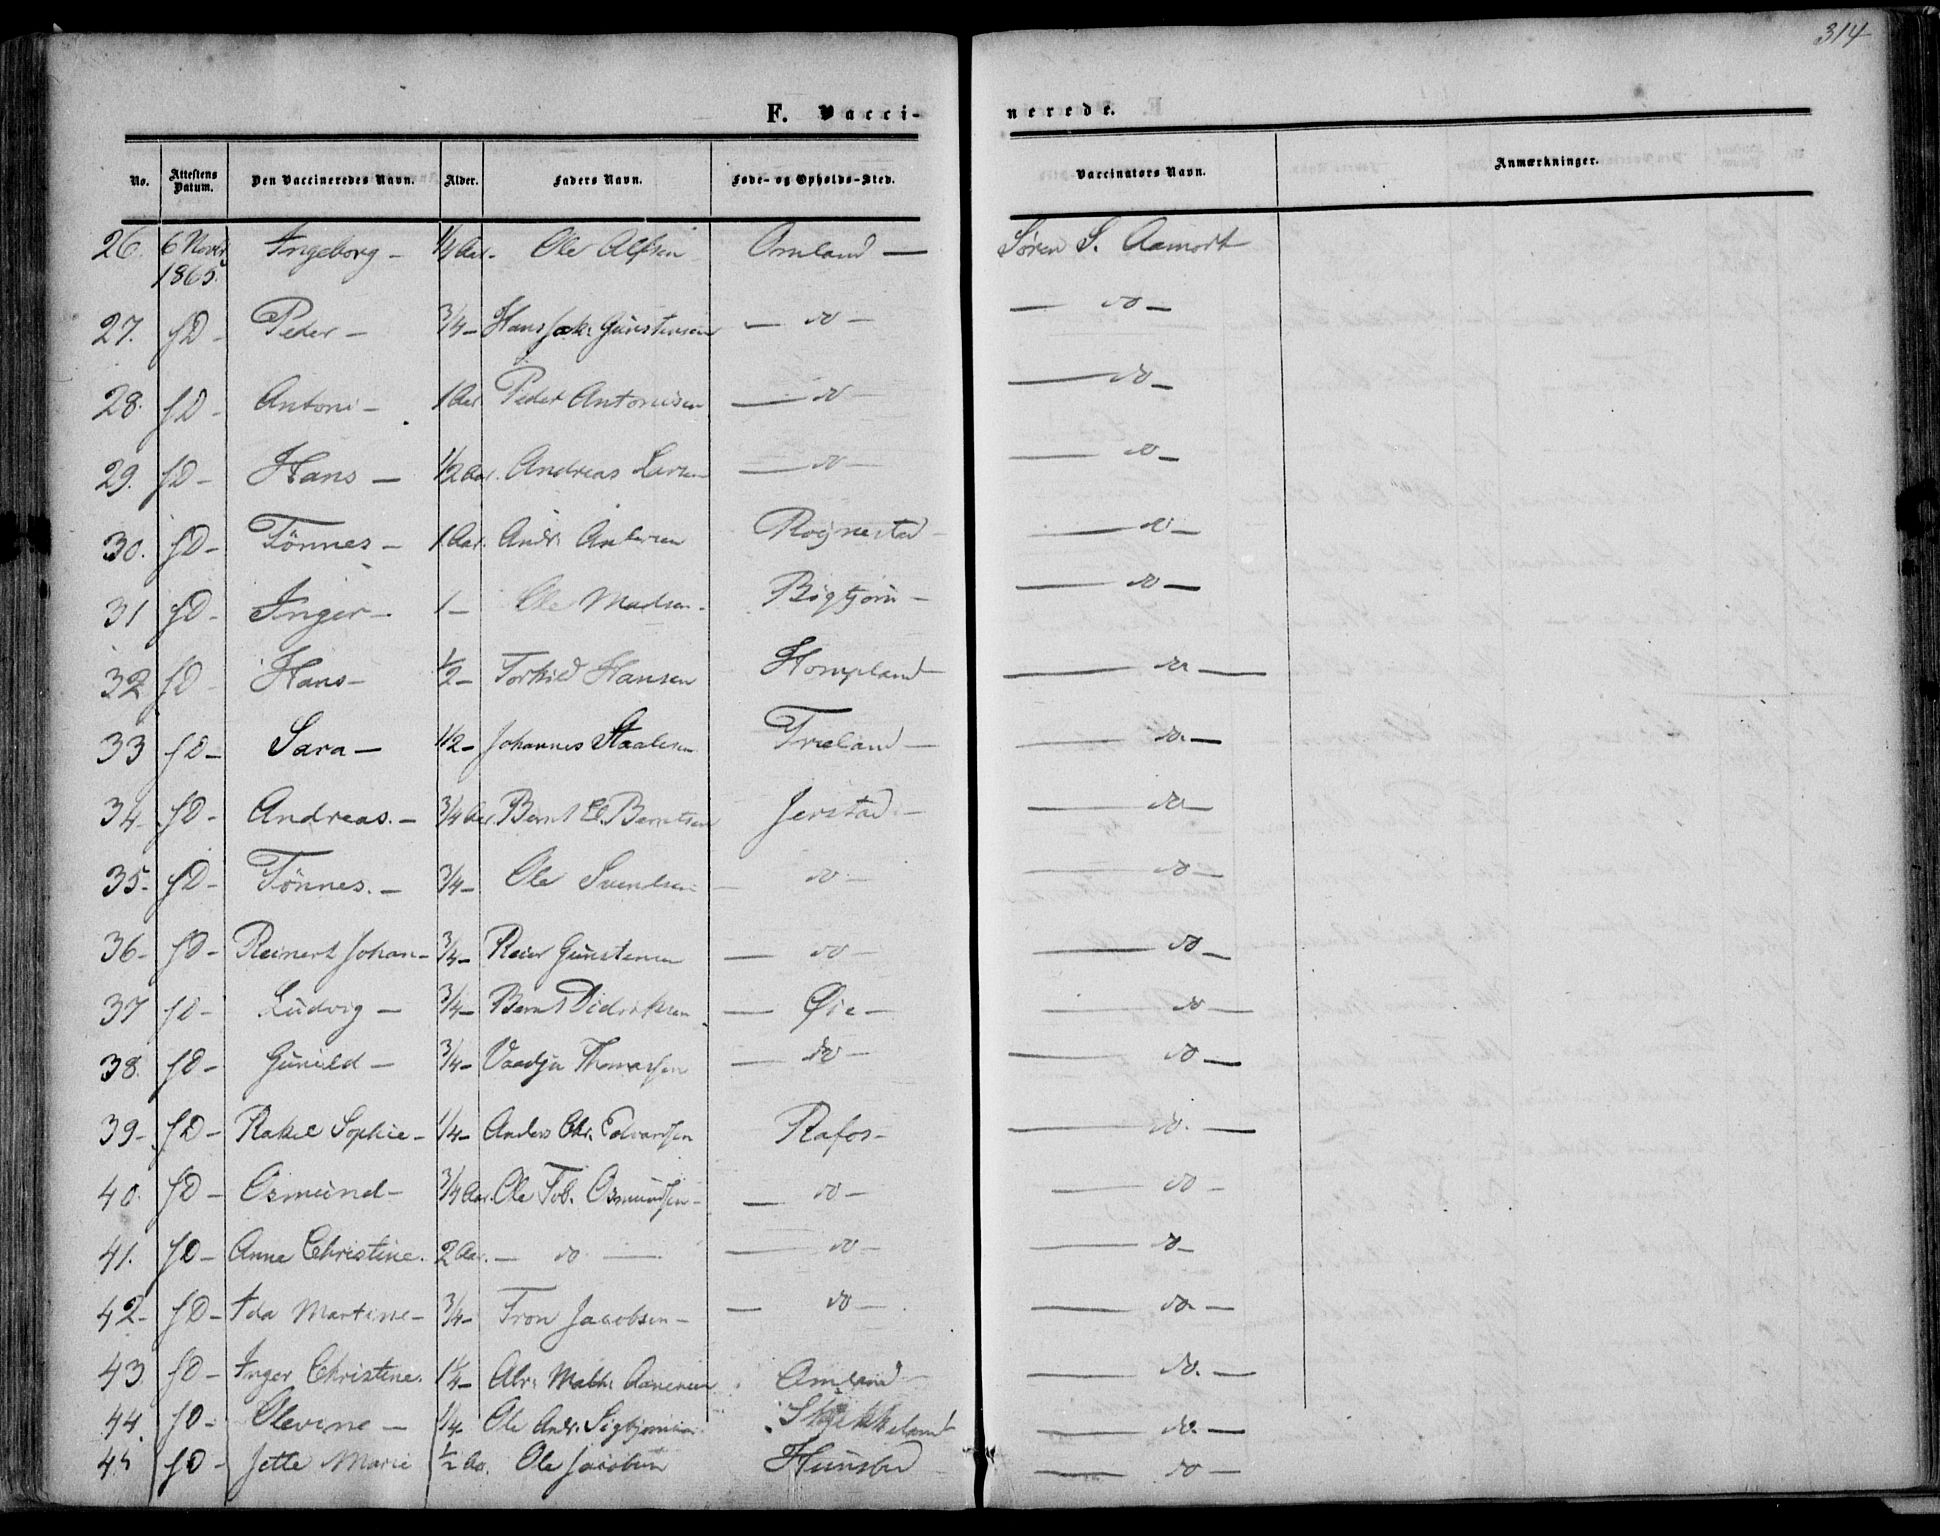 314
F. Vacci-nerede.
No. Attestens Datum. Den Vaccineredes Navn. Alder. Faders Navn. Føde- og Opholds-Sted. Vaccinators Navn. Anmærkninger.
26. 6 Novbr 1865. Ingeborg - 1/4 Aar. Ole Alfsen Omland — Søren S. Aamodt
27. fD - Peder - 3/4 - Hans Jak: Gunstensen — do — — do —
28. fD - Antoni - 1 Aar Peder Antonisen — do — — do —
29. fD - Hans - 1/2 Aar. Andreas Larsen — do — — do —
30. fD - Tönnes - 1 Aar. Andr. Andersen Røjnestad - — do —
31 fD - Inger - 1 - Ole Madsen - Bigtjørn - — do —
32 fD - Hans - 1/2 - Torkild Hansen Hompland — do —
33 fD - Sara - 1/2 - Johannes Staalesen Træland — — do. —
34 fD - Andreas. - 3/4 Aar. Bernt E. Berntsen Jerstad. — — do —
35. fD - Tönnes. - 3/4 - Ole Svendsen — do — — do —
36 - fD - Reinert Johan - 3/4 - Reier Gunstensen — do — — do —
37 fD - Ludvig - 3/4 - Bernt Didriksen — Øie — — do —
38. fD - Gunild - 3/4 - Vaadju Thomassen — do — — do —
39 - fD - Rakel Sophie - 1/4 - Anders Chr. Edvardsen Rafos - — do. —
40. fD - Osmund - 3/4 Aar. Ole Tob. Osmundsen - — do — — do —
41. fD - Anne Christine. 2 Aar. — do — — do — — do —
42 - fD - Ida Martine - 3/4 - Tron Jacobsen - — do — — do. —
43 fD - Inger Christine. 1/4 - Abr: Math: Aanensen Omland — do. —
44. fD - Olevine — 1/4 - Ole Andr. Sigbjørnsen. — do. —
45 fD - Jette Marie 1/2 Aa. Ole Jacobsen Hunsbed — do —